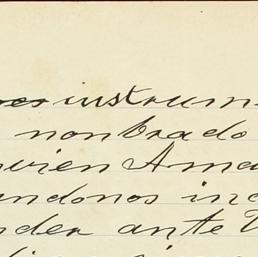 instrum
nonbrado
vien Ama
andonos inc
nder ante V